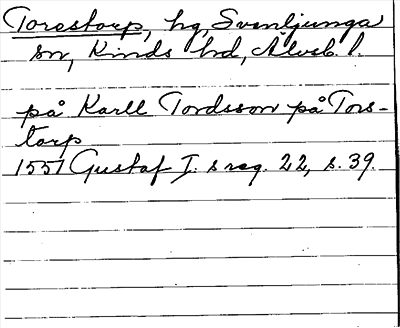 Torestorp, hg, Svenljunga
sn, Kinds hd, Älvsb. l.
på Karll Tordsson på Tors-
torp
1551 Gustaf I:s reg. 22, s. 39.